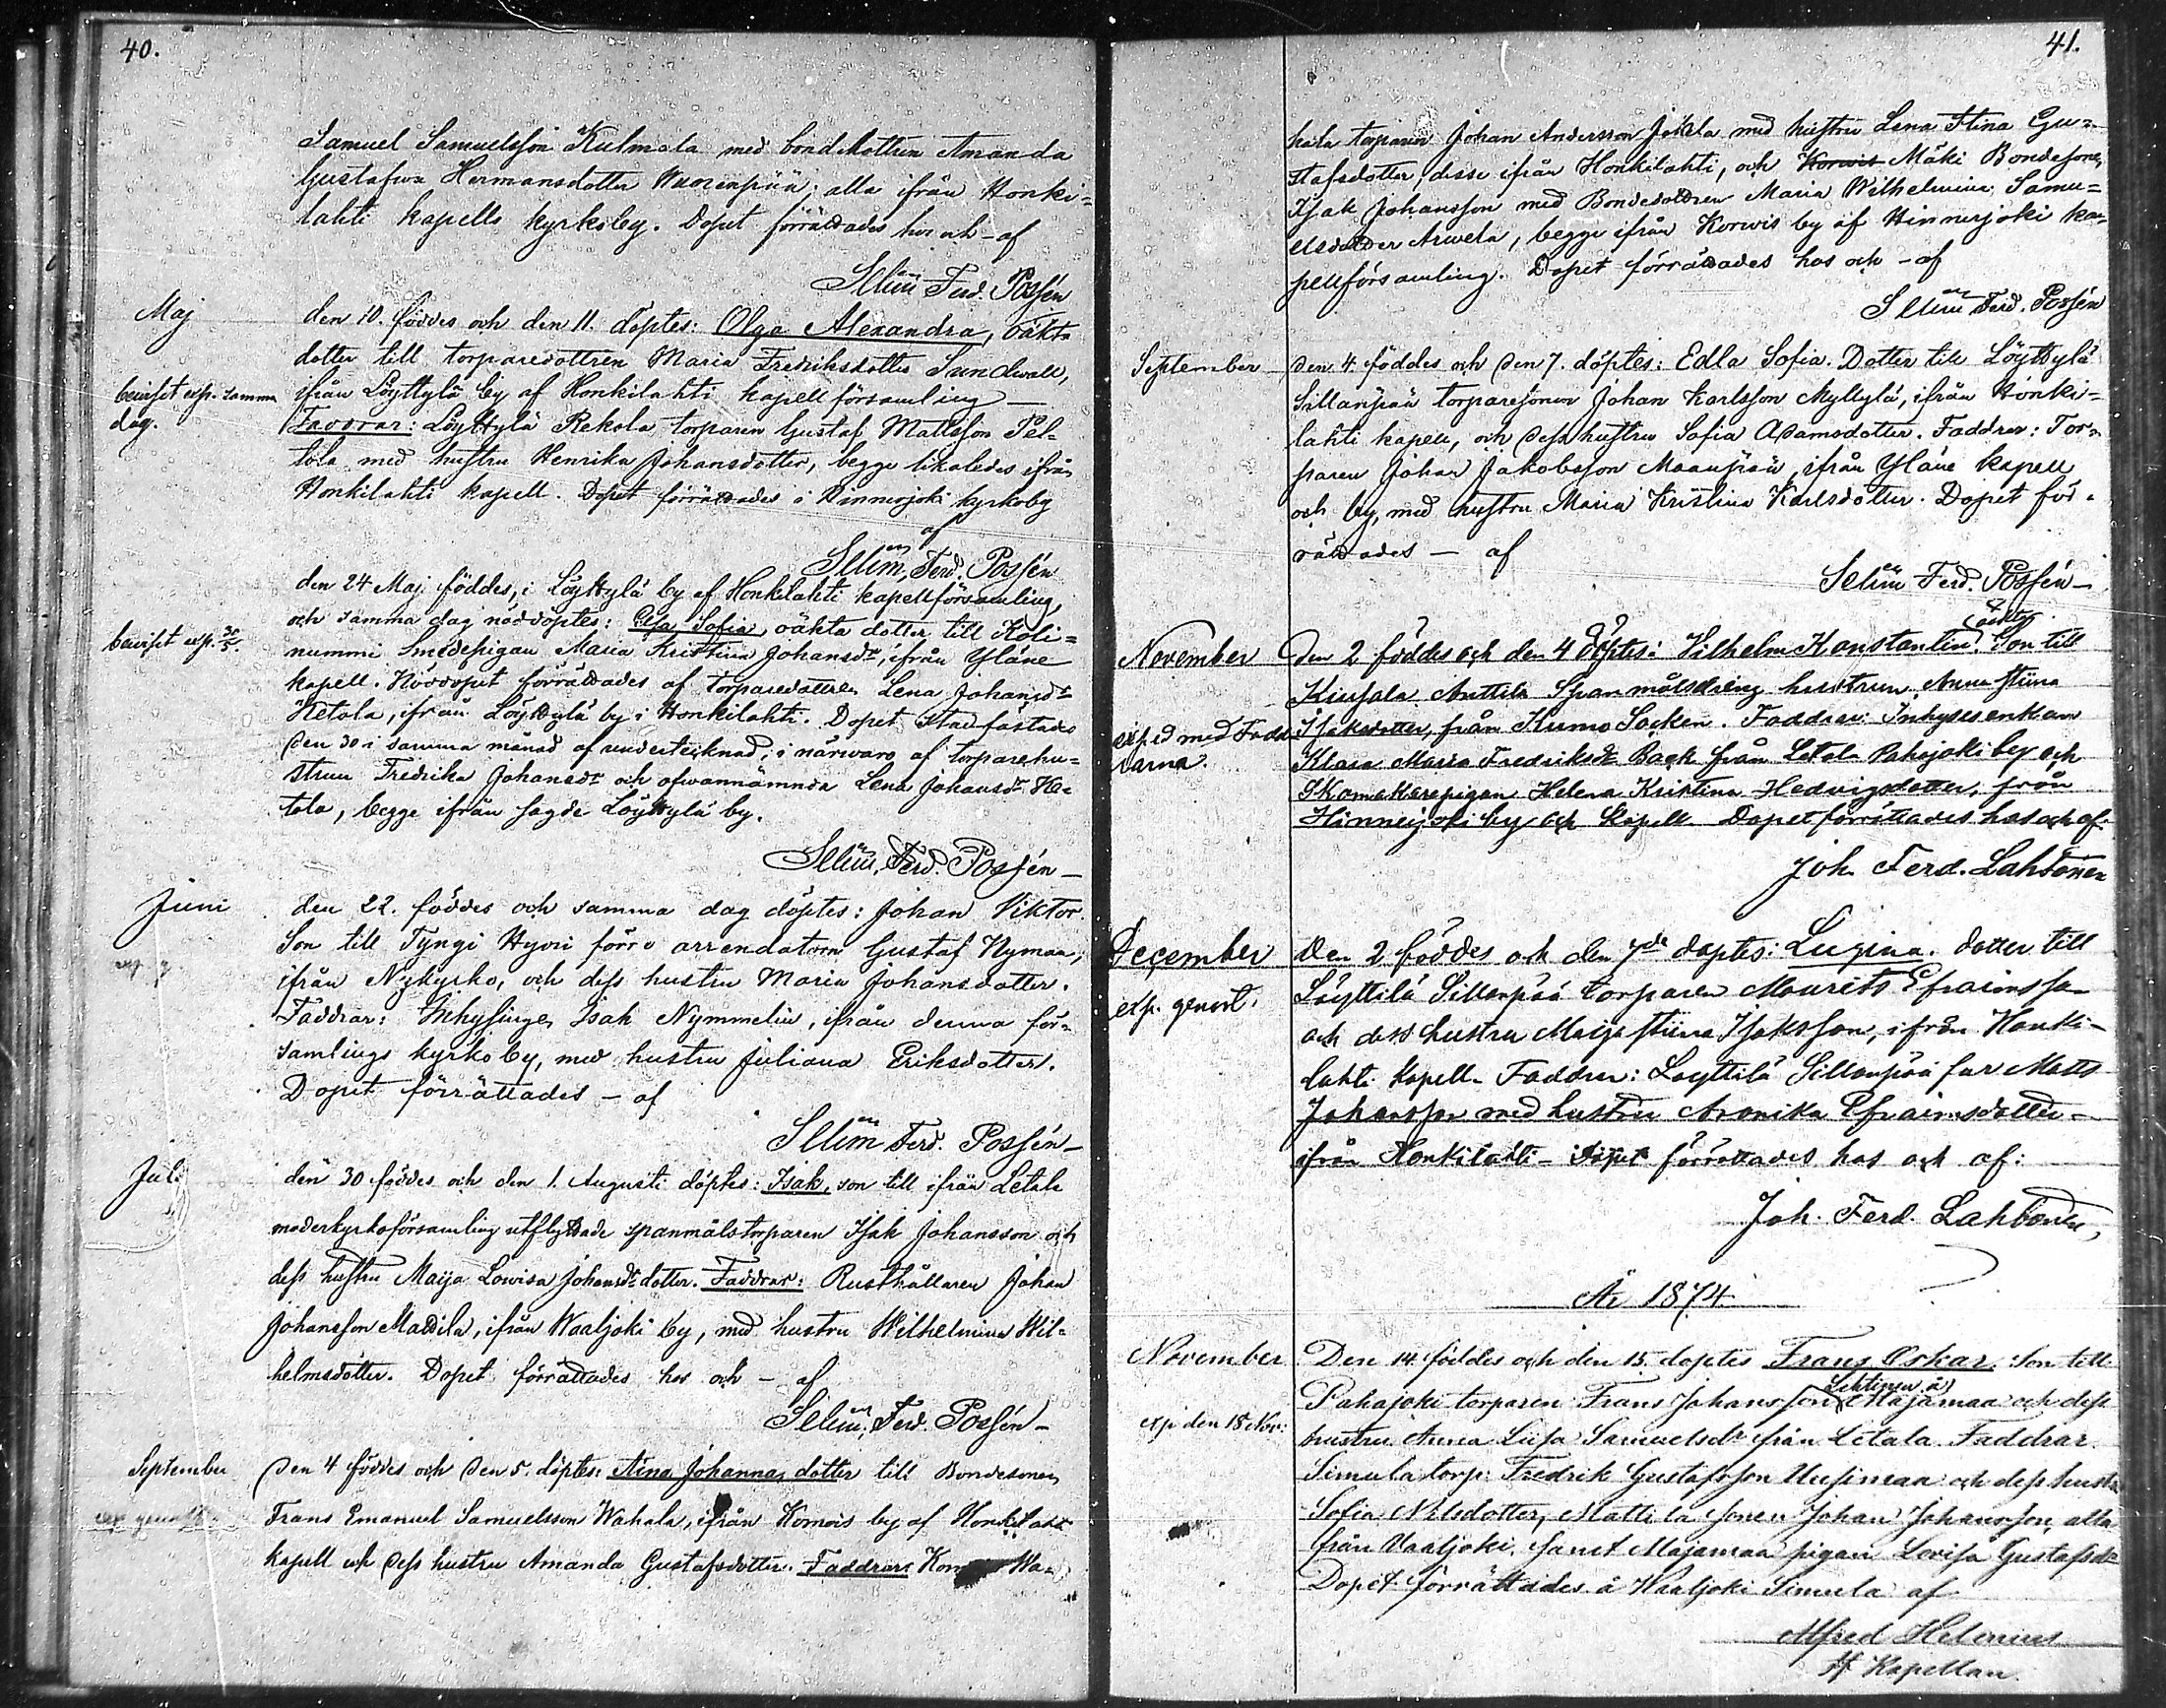 40.
Samuel Samuelsson Kulmala med bondedottren Amanda
Gustafva Hermansdotter Wuorenpää; alla ifrån Honki=
lahti kapells kyrkoby. Dopet förrättades hos och - af
Selim Ferd. Possén
Maj
den 10. föddes och den 11. döptes: Olga Alexandra, oäkta
dotter till torparedottren Maria Fredriksdotter Sundwall,
beviset exp. samma
dag.
ifrån Löyttylä by af Honkilahti kapellförsamling —
Faddrar: Löyttylä Rekola torparen Gustaf Mattsson Pel=
tola med hustru Henrika Johansdotter, begge likaledes ifrån
Honkilahti kapell. Dopet förrättades i Hinnerjoki kyrkoby
af
Selim Ferd. Possén
den 24 Maj föddes, i Löyttylä by af Honkilahti kapellförsamling,
och samma dag nöddöptes: Sofia, oäkta dotter till Koli=
beviset exp. 30/5.
nummi Smedepigan Maria Kristina Johansdr, ifrån Yläne
kapell. Nöddopet förrättades af torparedottren Lena Johansdr
Hetola, ifrån Löyttylä by i Honkilahti. Dopet stadfästades
den 30 i samma månad af undertecknad, i närwaro af torparehu=
strun Fredrika Johansdr och ofwannämnda Lena Johansdr He=
tola, begge ifrån sagde Löyttylä by.
Selim Ferd. Possén —
Juni
den 22. föddes och samma dag döptes: Johan Viktor.
Son till Tyngi Hyvri förre arrendatorn Gustaf Nyman,
ifrån Nykyrko, och dess hustru Maria Johansdotter.
Faddrar: Inhysingen Isak Nymmelin, ifrån denna för=
samlings kyrkoby, med hustru Juliana Eriksdotter.
Dopet förrättades — af
Selim Ferd. Possén —
Juli
den 30 föddes och den 1. Augusti döptes: Isak, son till ifrån Letala
moderkyrkoförsamling utflyttade spanmålstorparen Isak Johansson och
dess hustru Maija Lowisa Johansdr dotter. Faddrar: Rusthållaren Johan
Johansson Mattila, ifrån Waaljoki by, med hustru Wilhelmina Wil=
helmsdotter. Dopet förrättades hos och — af
Selim Ferd. Possén —
September
den 4 föddes och den 5. döptes: Aina Johanna, dotter till Bondesonen
Frans Emanuel Samuelsson Wahala, ifrån Korvois by af Honkilahti
kapell och dess hustru Amanda Gustafsdotter. Faddrar: Wa=
41.
hala torparen Johan Andersson Jokela med hustru Lena Stina Gu=
stafsdotter, desse ifrån Honkilahti, och Korvis Mäki Bondesonen
Isak Johansson med Bondedottren Maria Wilhelmina Samu=
elsdotter Arwela, begge ifrån Korwis by af Hinnerjoki ka=
pellförsamling. Dopet förrättades hos och — af
Selim Ferd. Possén
September
den 4. föddes och den 7. döptes: Edla Sofia. Dotter till Löyttylä
Sillanpää torparesonen Johan Karlsson Myllylä, ifrån Honki=
lahti kapell, och dess hustru Sofia Adamsdotter. Faddrar: Tor=
paren Johan Jakobsson Maanpää, ifrån Yläne kapell
och by, med hustru Maria Kristina Karlsdotter. Dopet för=
rättades — af
Selim Ferd. Possén —
November
oäkta
Den 2 föddes och den 4 döptes: Vilhelm Konstantin. Son till
Kiusala Anttila Spanmålsdräng hustrun Anna Stiina
exp.d med Fadd-
rarna.
Isaksdotter, från Kumo Socken. Faddrar: Inhysesenkan
Klara Maria Fredriksdr Back från Letala Pahojoki by och
Skomakarepigan Helena Kristina Hedvigsdotter, från
Hinnerjoki by och Kapell. Dopet förrättades hos och af
Joh. Ferd. Lahtonen
December
Den 2 föddes och den 7de döptes: Luzina. dotter till
exp. genast.
Löyttilä Sillanpää torparen Maurits Efraimsson
och dess hustru Maija Stiina Isaksson, ifrån Honki-
lahti Kapell. Faddrar: Löyttilä Sillanpää far Matts
Johansson med hustru Aronika Efraimsdotter -
ifrån Honkilahti - dopet förrättades hos och af:
Joh. Ferd. Lahtonen,
År 1874
November
Den 14. föddes och den 15. döptes Frans Oskar. Son till
Lehtinen å
Pahajoki torparen Frans Johansson Majamaa och dess
exp den 15 Nov:
hustru Anna Liisa Samuelsdr från Letala. Faddrar.
Simula torp: Fredrik Gustafsson Uusimaa och dess hustru
Sofia Nilsdotter, Mattila sonen Johan Johansson, alla
från Vaaljoki, samt Majamaa pigan Lovisa Gustafsdr
Dopet förrättades å Waaljoki Simula af
Alfred Helenius
Kapellan.